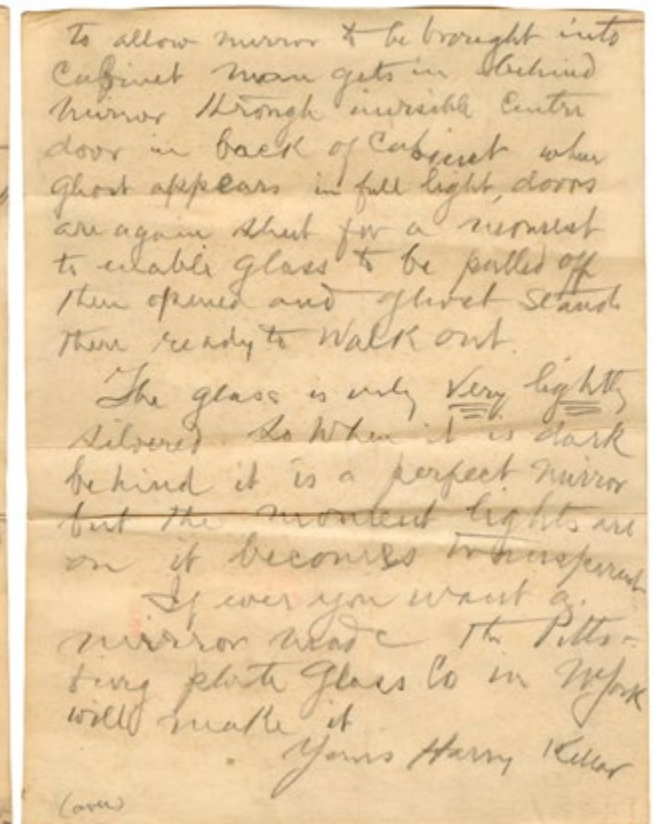 to allow mirror to be brought into
Cabinet man gets in behind
mirror through invisible Centre
door in back of Cabinet when
Ghost appears in full light, doors
are again shut for a moment
to enable glass to be pulled off
then opened and ghost stands
there ready to walk out.
The glass is only very lightly
silvered so when it is dark
behind it is a perfect mirror
but the moment lights are
on it becomes transparent
If ever you want a
mirror made the Pitts-
burg plate Glass Co in NYork
will make it
Yours Harry Kellar
(over)